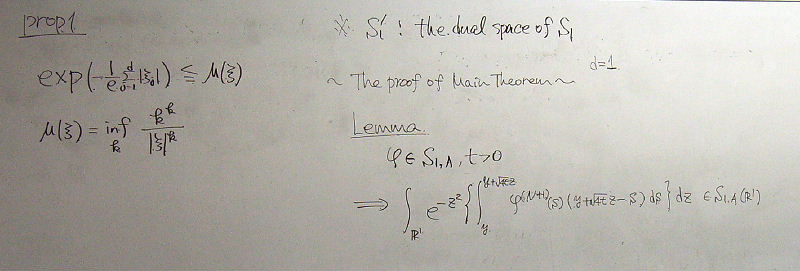 prop.1
exp(-1/e Σ_{ν=1}^{d} |ξ_ν|) ≦ μ(ξ)
μ(ξ) = inf_k k^k / |ξ|^k
※ S₁' : the dual space of S₁
~ The proof of Main Theorem ~ d=1
Lemma.
φ ∈ S_{1,A}, t>0
⟹ ∫_{ℝ¹} e^{-z²} { ∫_y^{y+√4t z} φ^{(N+1)}(s) (y+√4t z - s) ds } dz ∈ S_{1,A}(ℝ¹)